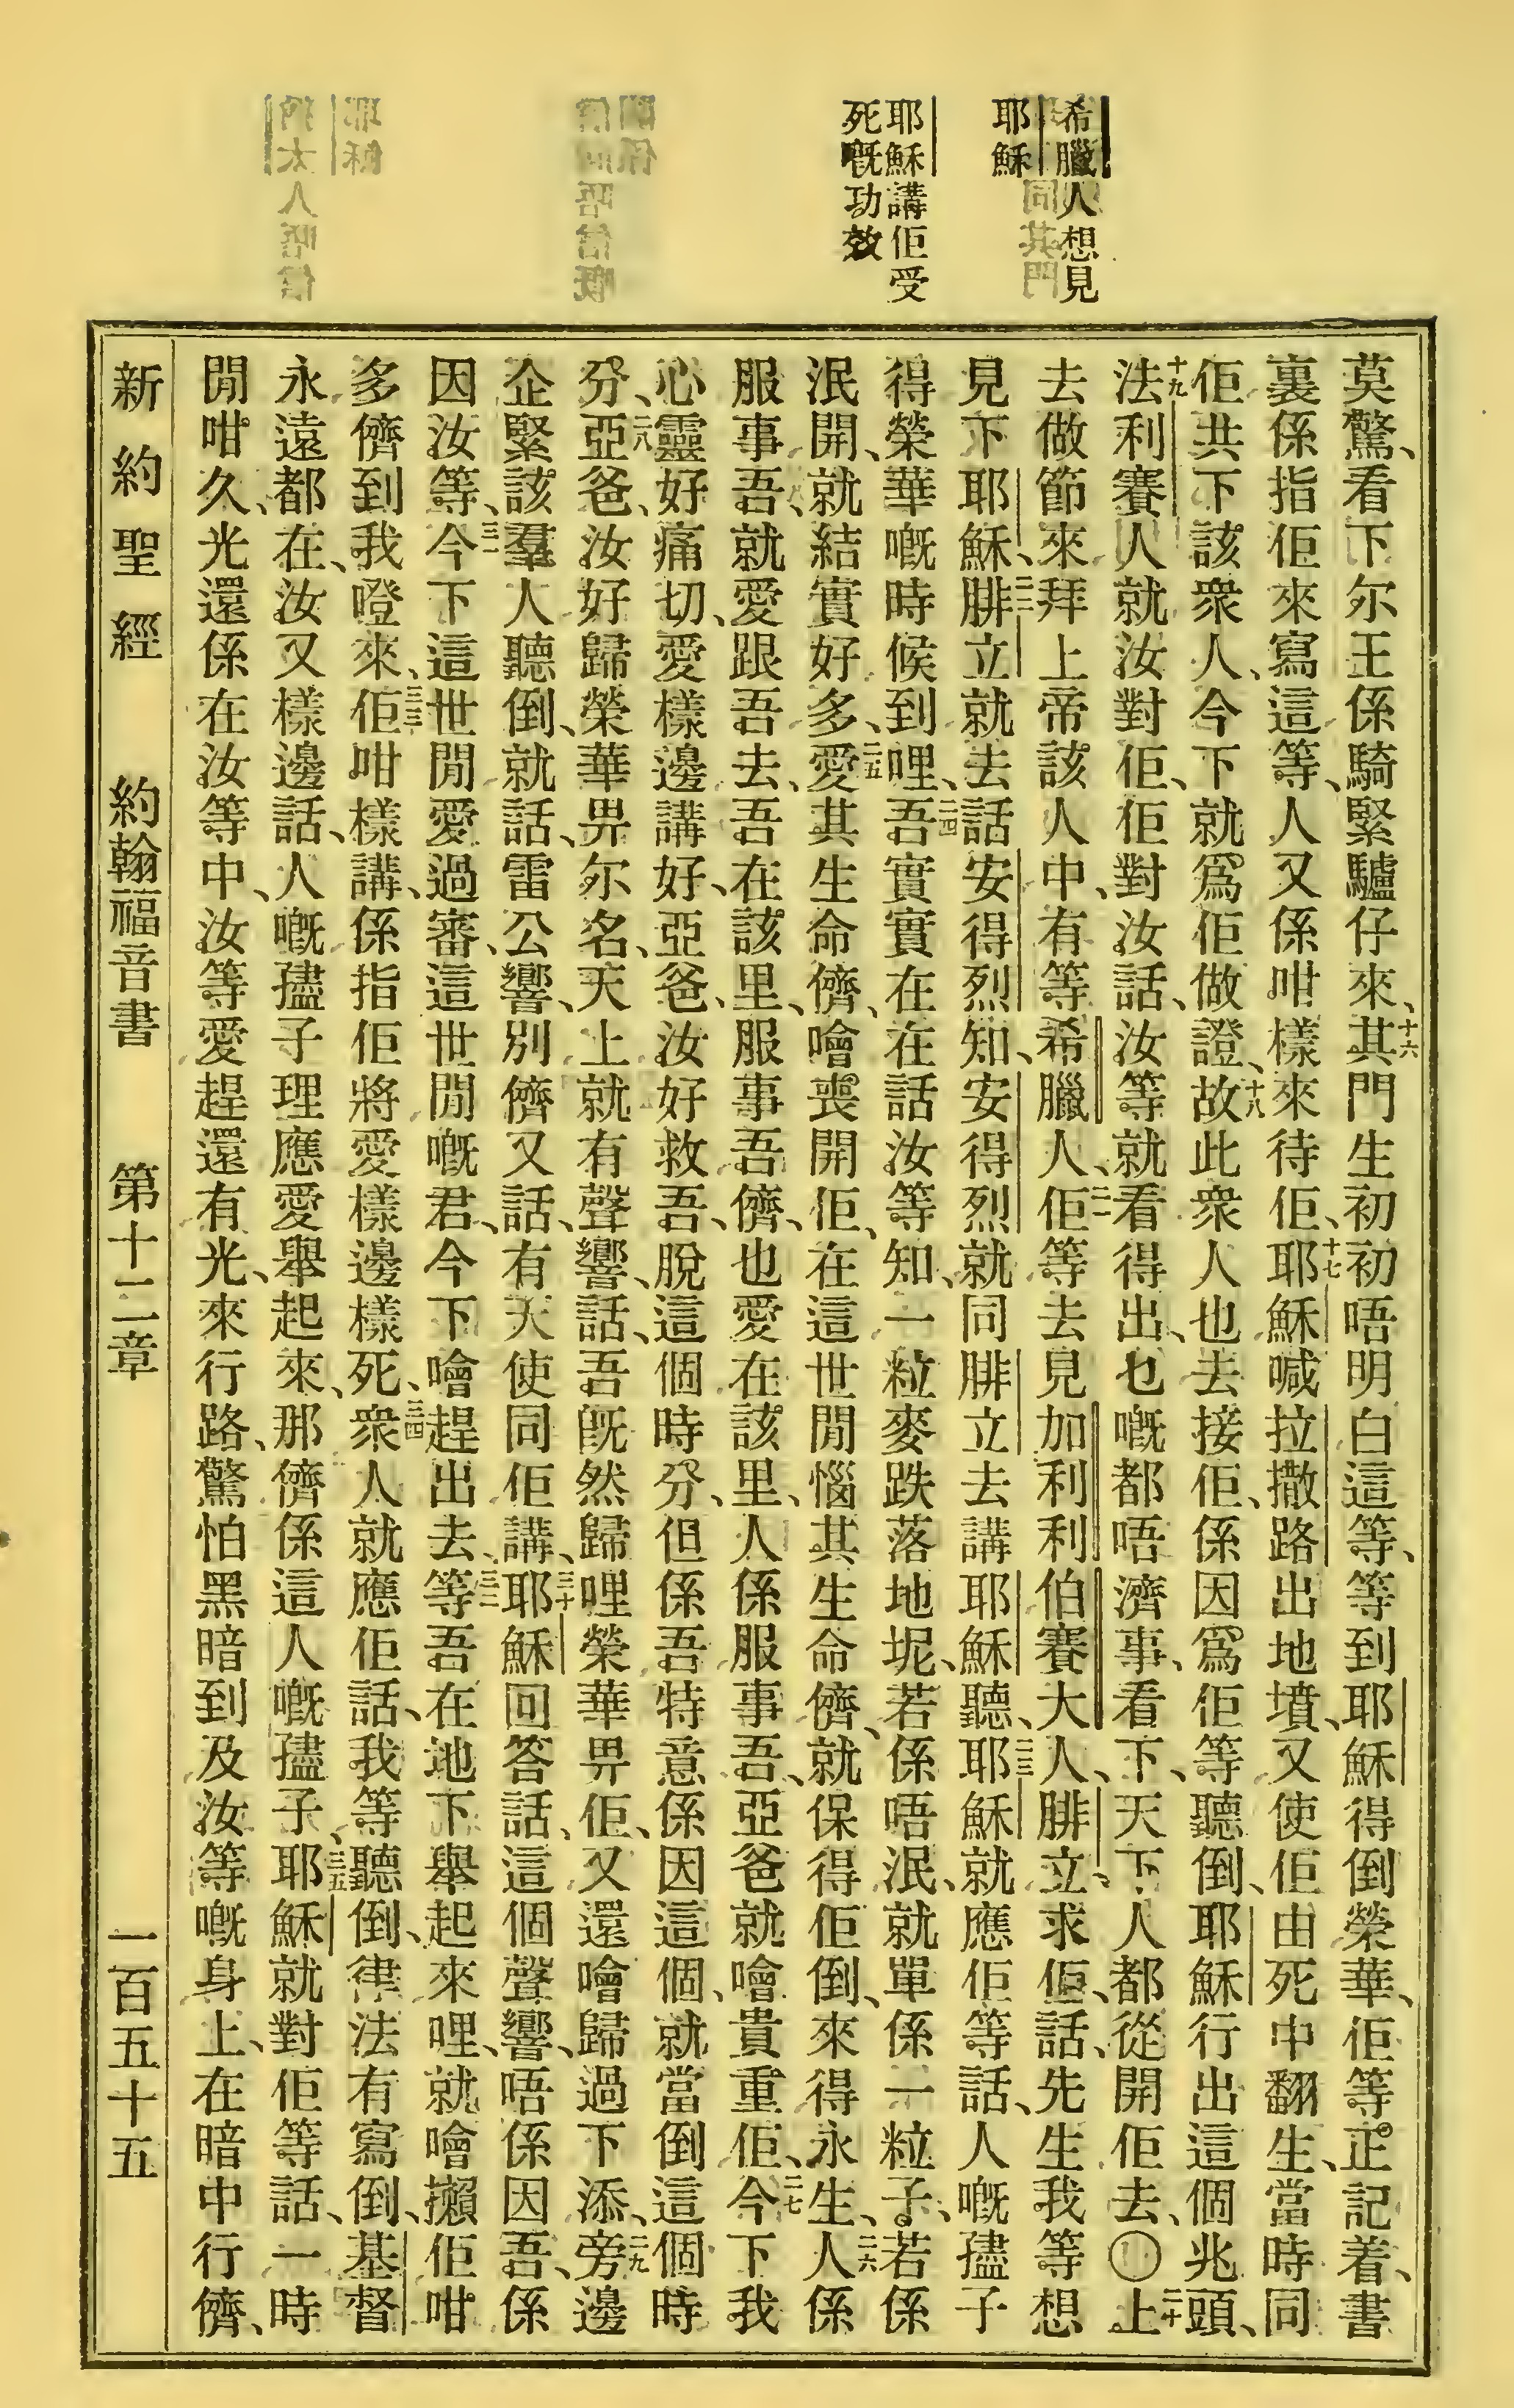 希臘人想見
耶穌
耶穌講佢受
死嘅功效
莫驚、看下尔王係騎緊驢仔來、十六其門生初初唔明白這等、等到耶穌得倒榮華、佢等正記着、書
裏係指佢來寫這等、人又係咁樣來待佢、十七耶穌喊拉撒路出地墳、又使佢由死中翻生、當時同
佢共下該衆人、今下就爲佢做證、十八故此衆人也去接佢、係因爲佢等聽倒、耶穌行出這個兆頭、
十九法利賽人就汝對佢、佢對汝話、汝等就看得出、乜嘅都唔濟事、看下、天下人都從開佢去、〇二十上
去做節來拜上帝該人中、有等希臘人、二一佢等去見加利利伯賽大人、腓立、求佢、話、先生我等想
見下耶穌、二二腓立就去話安得烈知、安得烈就同腓立去講耶穌聽、二三耶穌就應佢等話、人嘅孻子
得榮華嘅時候到哩、二四吾實實在在話汝等知、一粒麥跌落地坭、若係唔泯、就單係一粒子、若係
泯開、就結實好多、二五愛其生命儕、噲喪開佢、在這世間惱其生命儕、就保得佢倒、來得永生、二六人係
服事吾、就愛跟吾去、吾在該里、服事吾儕、也愛在該里、人係服事吾、亞爸就噲貴重佢、二七今下我
心靈好痛切、愛樣邊講好、亞爸、汝好救吾、脫這個時分、但係吾特意係因這個、就當倒這個時
分、二八亞爸、汝好歸榮華畀尔名、天上就有聲響、話、吾既然歸哩榮華畀佢、又還噲歸過下添、二九旁邊
企緊該羣人聽倒、就話、雷公響、別儕又話、有天使同佢講、三十耶穌回答話、這個聲響、唔係因吾、係
因汝等、三一今下這世間愛過審、這世間嘅君、今下噲趕出去、三二等吾在地下舉起來哩、就噲攋佢咁
多儕到我嶝來、三三佢咁樣講、係指佢將愛樣邊樣死、三四衆人就應佢話、我等聽倒、律法有寫倒、基督
永遠都在、汝又樣邊話、人嘅孻子理應愛舉起來、那儕係這人嘅孻子、三五耶穌就對佢等話、一時
間咁久、光還係在汝等中、汝等愛趕還有光、來行路、驚怕黑暗到及汝等嘅身上、在暗中行儕、
新約聖經　約翰福音書　第十二章　一百五十五